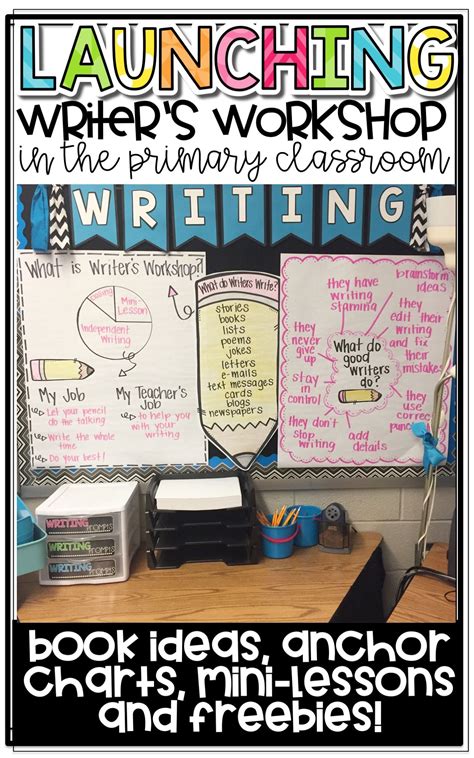 LAUNCHING
WRITER'S WORKSHOP
in the primary classroom
WRITING
What is Writer's Workshop?
Mini-
Lesson
Independent
Writing
My Job
Let your pencil
do the talking
Write the whole
time
Do your best!
My Teacher's
Job
to help you
with your
writing
What do Writers Write?
stories
books
lists
poems
jokes
letters
e-mails
text messages
cards
blogs
newspapers
What do
good
writers
do?
they have
writing
stamina
brainstorm
ideas
they
edit their
writing
and fix
their
mistakes
they
use
correct
add
details
they don't
stop
writing
stay
in
control
they
never
give
up
WRITING
PROMPTS
WRITING
PROMPTS
WRITING
PROMPTS
book ideas, anchor
charts, mini-lessons
and freebies!